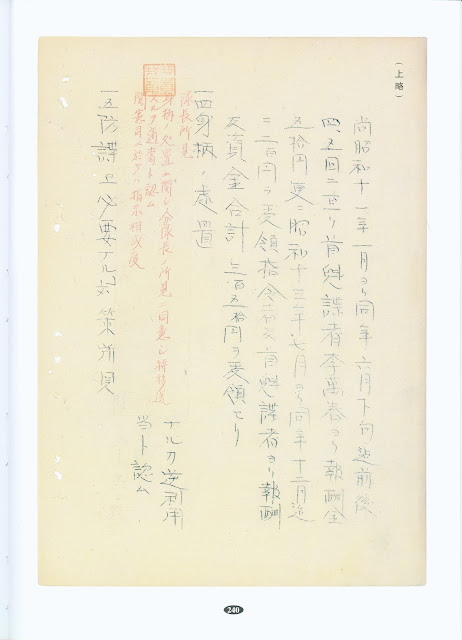 (上略)
尚昭和十一年一月ヨリ同年六月下旬迄前後
四、五回ニ亘リ首魁諜者李萬春ヨリ報酬金
五拾円更ニ昭和十三年七月ヨリ同年十二月迄
ニ三百円ヲ受領指令
首魁諜者ヨリ報酬
及資金合計三百五拾円ヲ受領セリ
一四、身柄ノ処置
隊長所見
身柄ノ処置ニ関シ分隊長ノ所見ニ同意シ特移送
スルヲ適当ト認ム
関東憲司ニ於テハ指示相成度
ナルカ逆利用
当ト認ム
一五、防諜上必要ナル対策所見
240